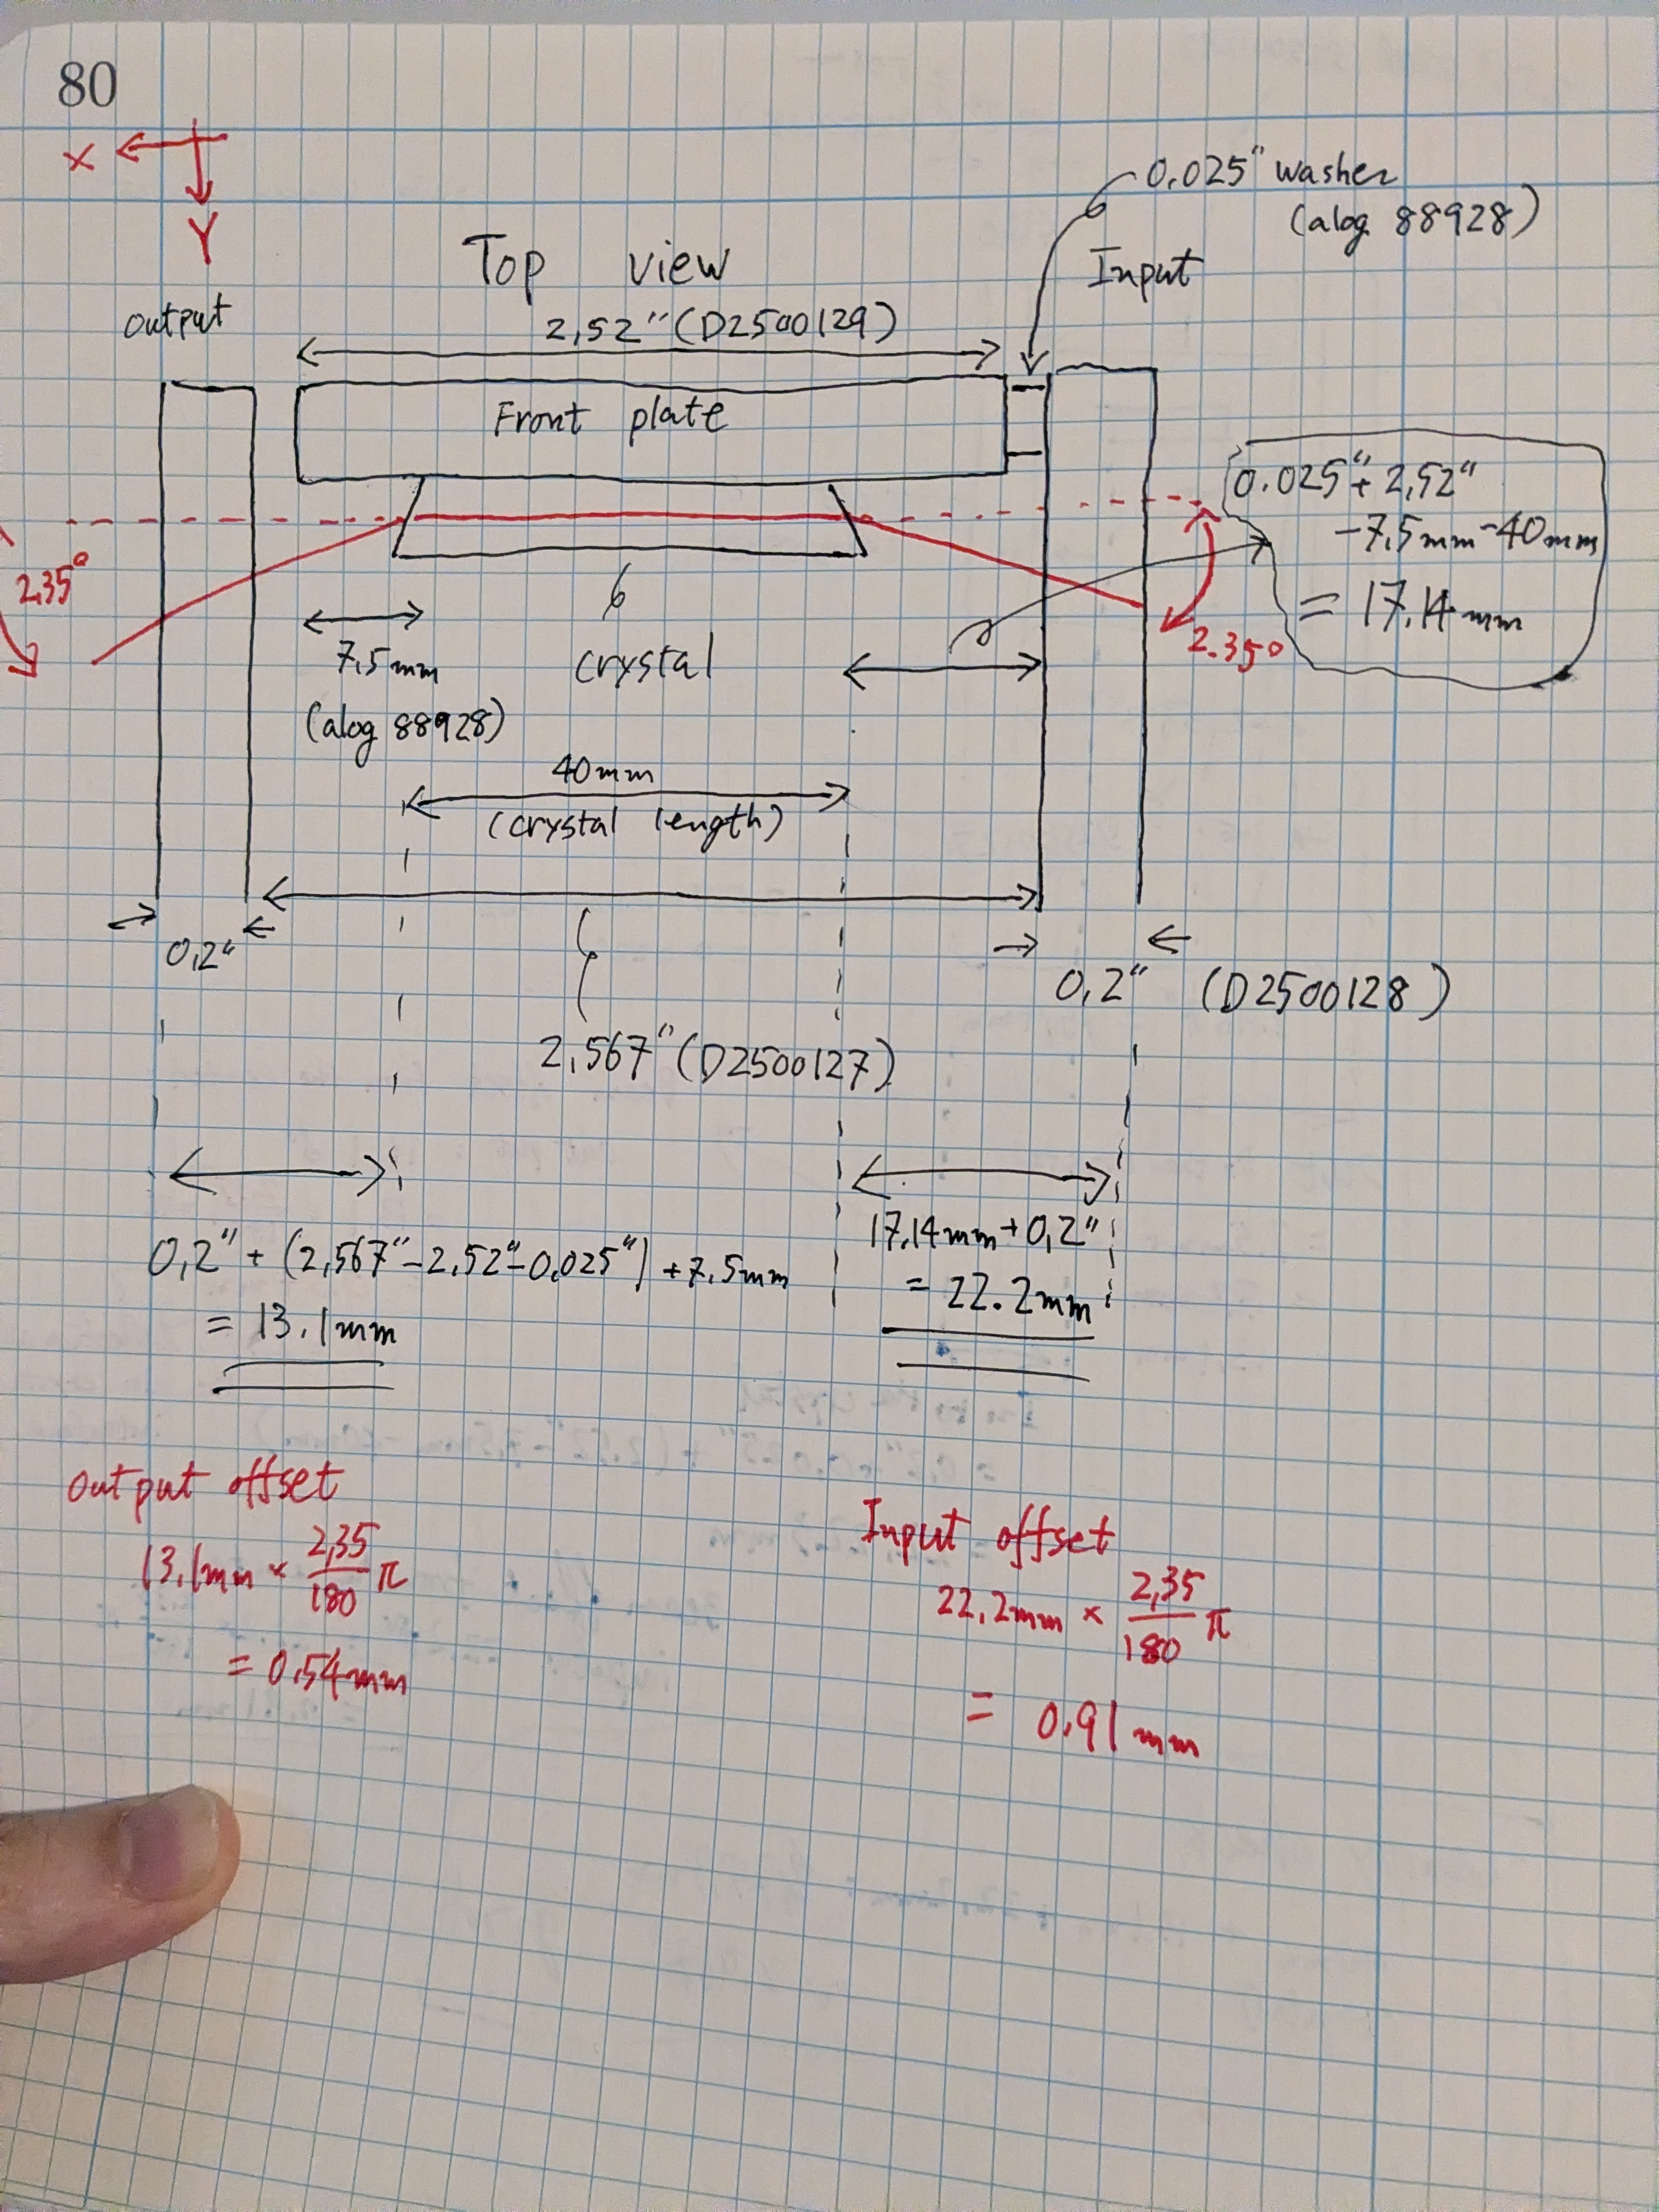 80
X
Y
0.025" washer
(alog 88928)
Top view
Input
output
2.52" (D2500129)
Front plate
0.025" + 2.52"
-7.5mm-40mm
= 17.14mm
2.35°
2.35°
7.5mm
(alog 88928)
crystal
40mm
(crystal length)
0.2"
0.2" (D2500128)
2.567" (D2500127)
0.2" + (2.567"-2.52"-0.025") + 7.5mm
= 13.1mm
17.14mm+0.2"
= 22.2mm
output offset
13.1mm × 2.35/180 π
= 0.54mm
Input offset
22.2mm × 2.35/180 π
= 0.91mm